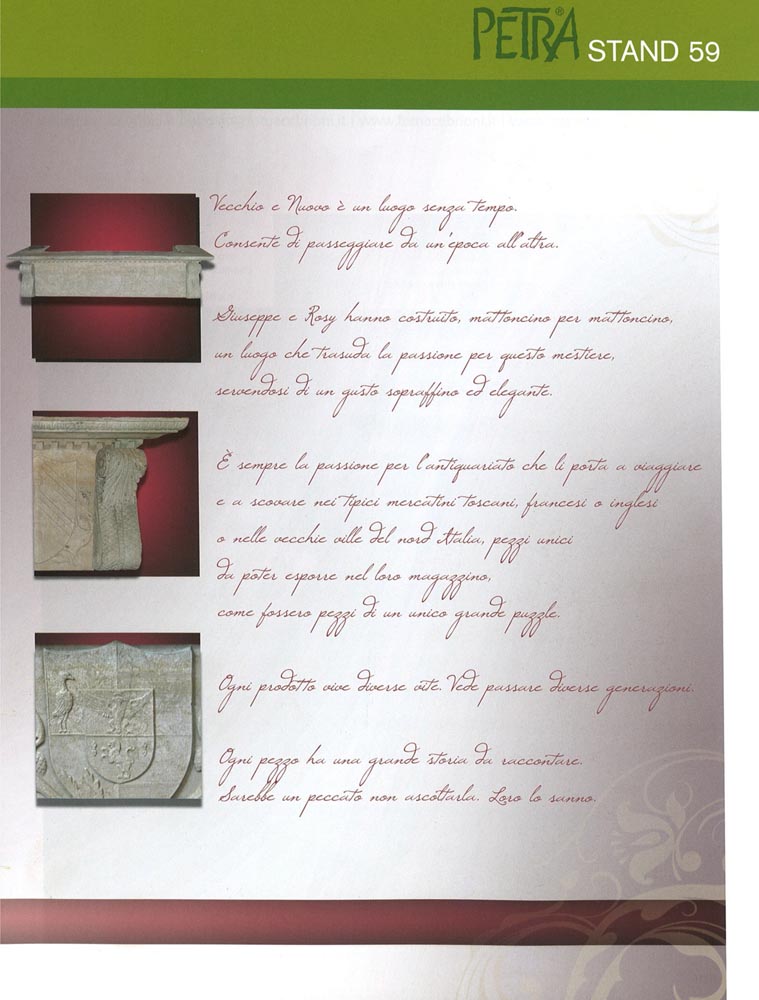 PETRA® STAND 59
Vecchio e Nuovo è un luogo senza tempo.
Consente di passeggiare da un'epoca all'altra.
Giuseppe e Rosy hanno costruito, mattoncino per mattoncino,
un luogo che trasuda la passione per questo mestiere,
servendosi di un gusto sopraffino ed elegante.
È sempre la passione per l'antiquariato che li porta a viaggiare
e a scovare nei tipici mercatini toscani, francesi o inglesi
o nelle vecchie ville del nord Italia, pezzi unici
da poter esporre nel loro magazzino,
come fossero pezzi di un unico grande puzzle.
Ogni prodotto vive diverse vite. Vede passare diverse generazioni.
Ogni pezzo ha una grande storia da raccontare.
Sarebbe un peccato non ascoltarla. Loro lo sanno.